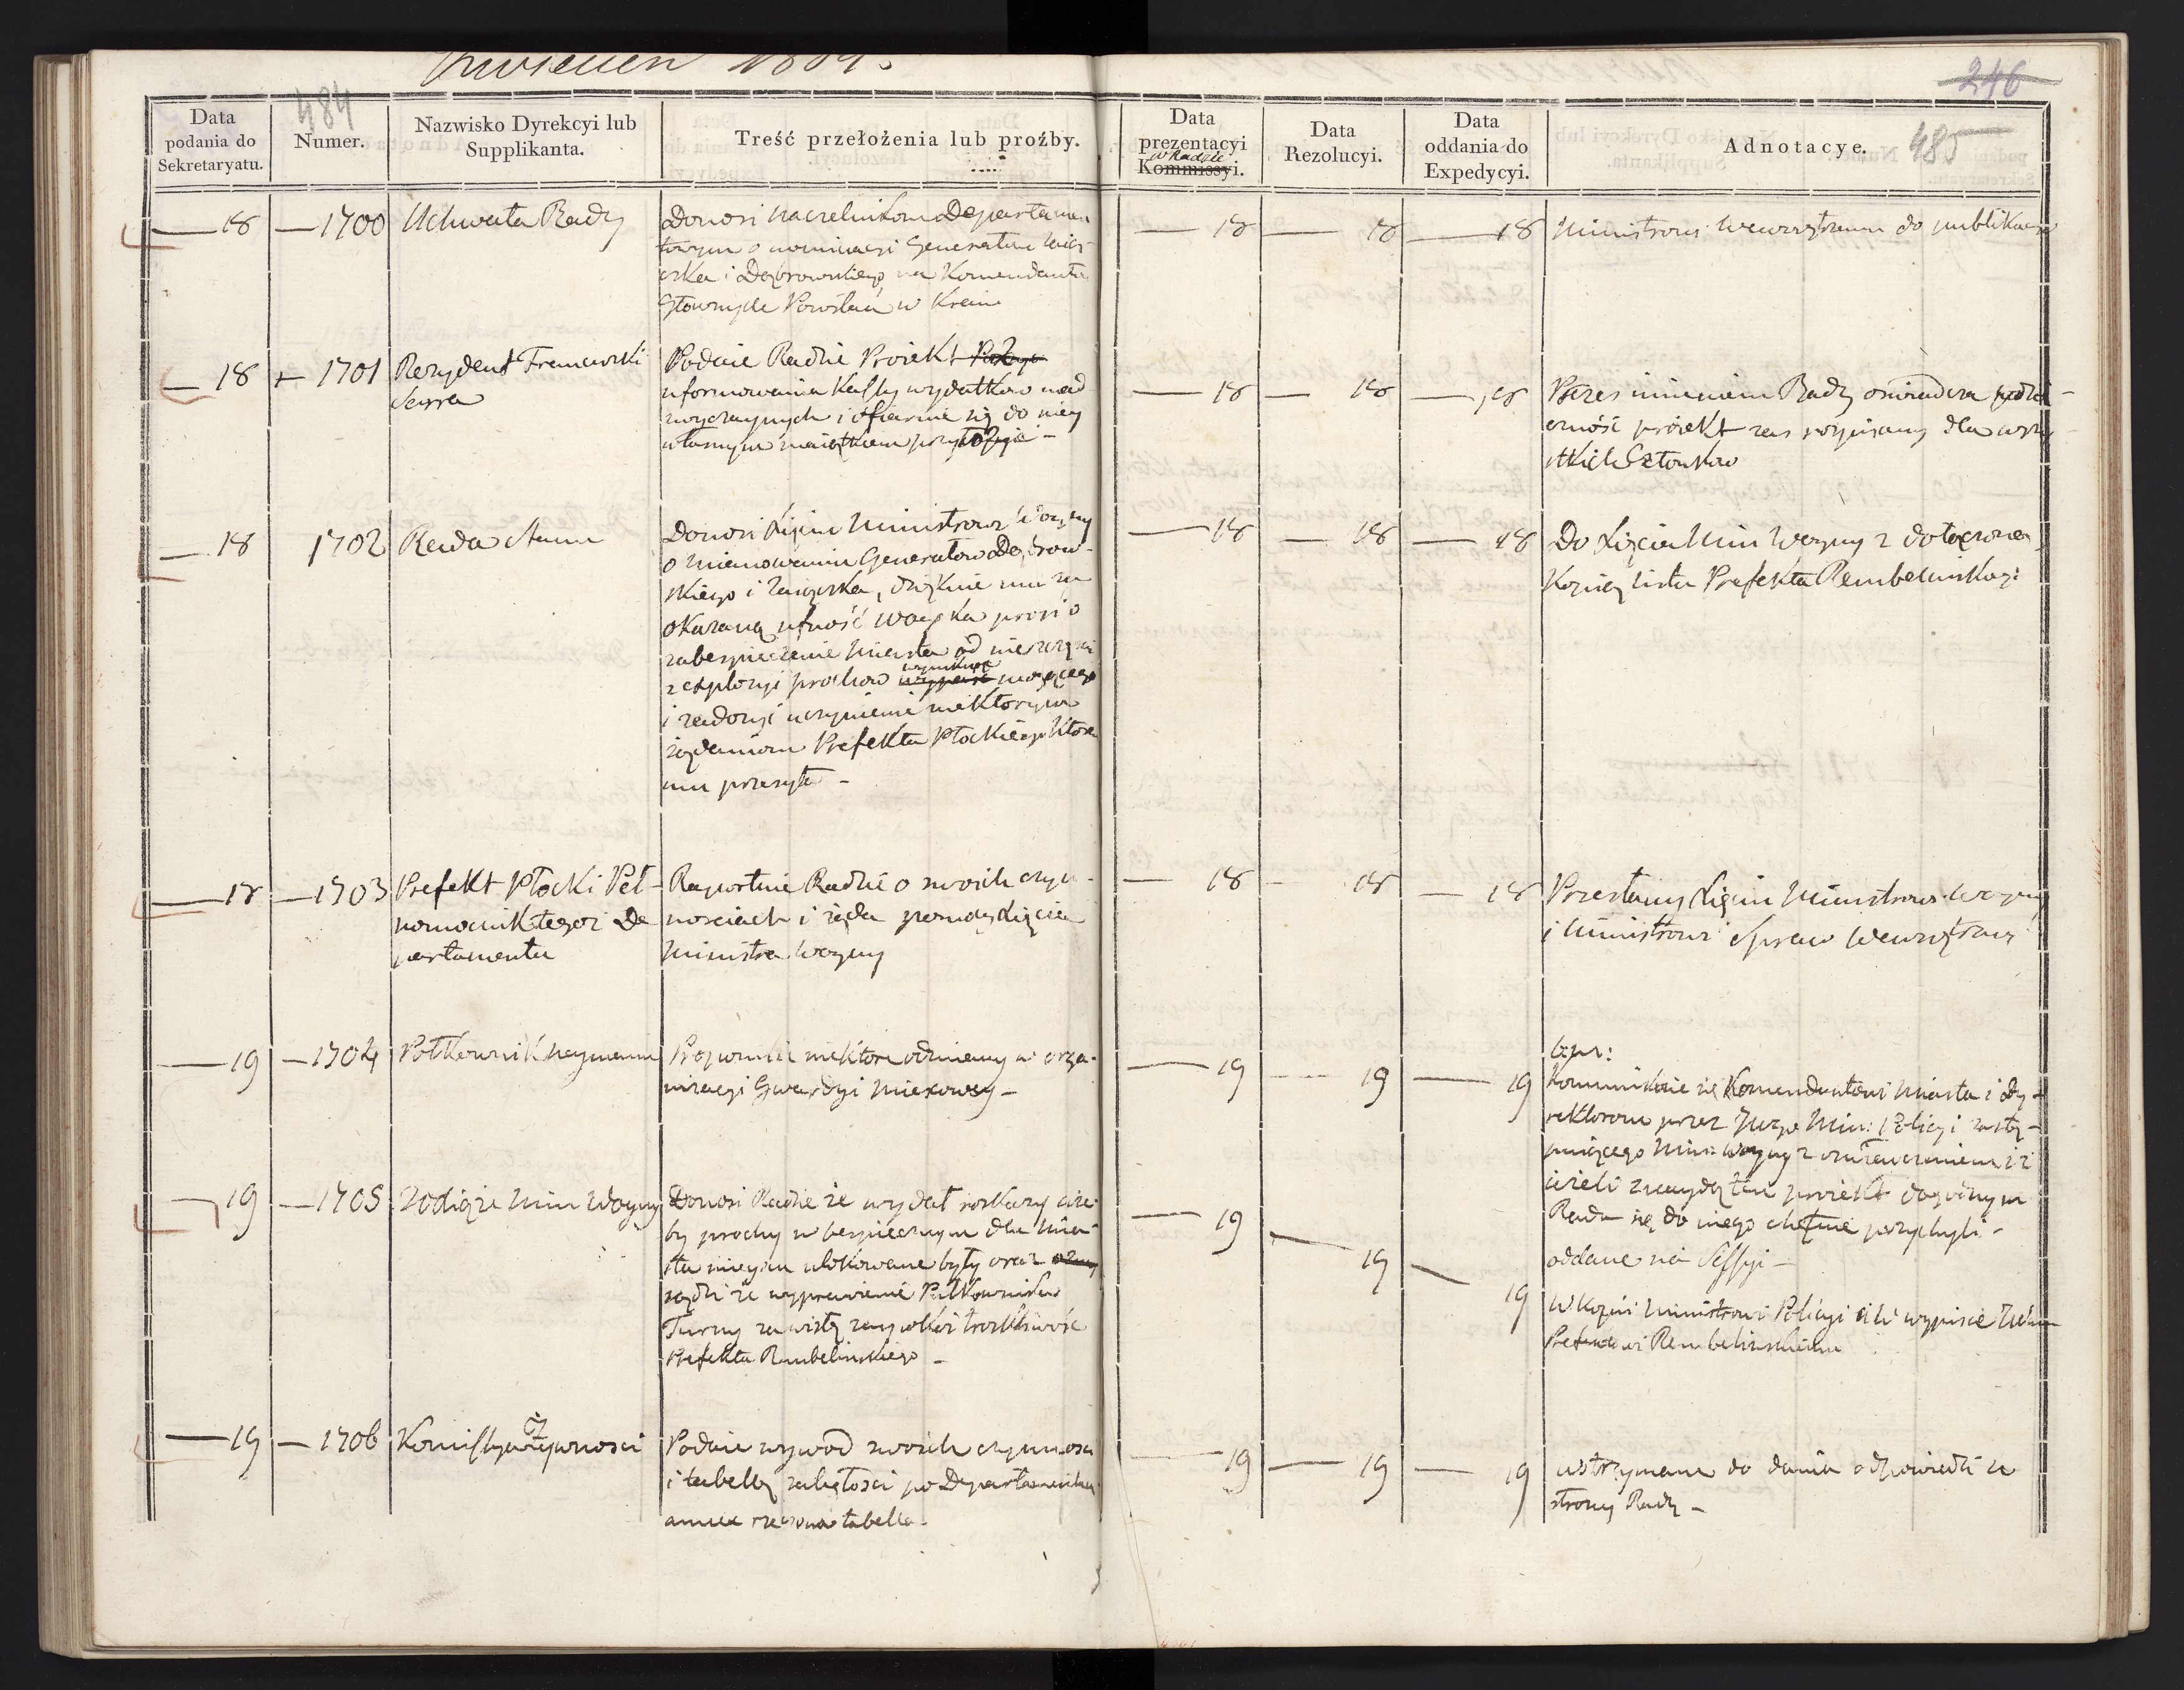 Kwiecień 1809.
484
246
485
Data podania do Sekretaryatu.
Numer.
Nazwisko Dyrekcyi lub Supplikanta.
Treść przełożenia lub proźby.
Data prezentacyi w Radzie Kommissyi.
Data Rezolucyi.
Data oddania do Expedycyi.
Adnotacye.
18 — 1700 Uchwała Rady
Donosi Naczelnikom Departamen
towym o nominacyi Generałów Zaią
czka i Dąbrowskiego na Komendantów
Głownych Powstań w Kraiu
18 18 18
Ministrowi Wewnętrznemu do publikacyi
18 + 1701 Rezydent Francuzki
Serra
Podaie Radzie Proiekt
uformowania Kassy wydatków nad
zwyczaynych i ofiaruie się do niey
własnym maiątkiem przyłożyć —
18 18 18
Prezes imieniem Rady oświadcza wdzi-
czność proiekt zas przypisany dla wszy
stkich Członkow
18 1702 Rada Stanu
Donosi Xięciu Ministrowi Woyny
o mianowaniu Generałow Dąbrow-
skiego i Zaiączka, dziękuie mu za
okazaną ufność woyska prosi o
zabezpieczenie Miasta od nieszczęści
z explozyi prochow wyniknąć mogącego
i zadosyć uczynienie niektorym
żądaniom Prefekta Płockiego które
mu przesyła —
18 18 18
Do Xięcia Min Woyny z dołączoną
Kopią listu Prefekta Rembelinskiego
18 — 1703 Prefekt Płocki Peł-
nomocnik tegoż De
partamentu
Raportuie Radzie o swoich czyn-
nosciach i żąda pomocy Xięcia
Ministra Woyny
18 18 18
Przesłany Xięciu Ministrowi Woyny
i Ministrowi Spraw Wewnętrznych
19 — 1704 Połkownik Neymann
Proponuie niektore odmiany w orga-
nizacyi Gwardyi Mieyscowey —
19 19 19
Kommunikuie się Komendantowi Miasta i dy-
rektorom przez JWgo Min: Policyi zastę-
puiącego Min: Woyny z oświadczeniem iż
ieżeli znaydą ten proiekt dogodnym
Rada się do niego chętnie przychyli —
oddane na Sessyi —
19 — 1705 Xiąże Min Woyny
Donosi Radzie że wydał roskazy aże-
by prochy w bezpiecznym dla Mia-
sta mieyscu ulokowane były oraz
sądzi że wyprawienie Pułkownika
Turny zawistą zaspokoi troskliwość
Prefekta Rembelinskiego —
19 19 19
W Kopii Ministrowi Policyi a w wypisie
Prefektowi Rembelinskiemu
19 — 1706 Komissya Żywnosci
Podaie wywod swoich czynnosci
i tabellę zaległosci po Departamentach
annex rzeczona tabella.
19 19 19
wstrzymane do dania odpowiedzi ze
strony Rady —